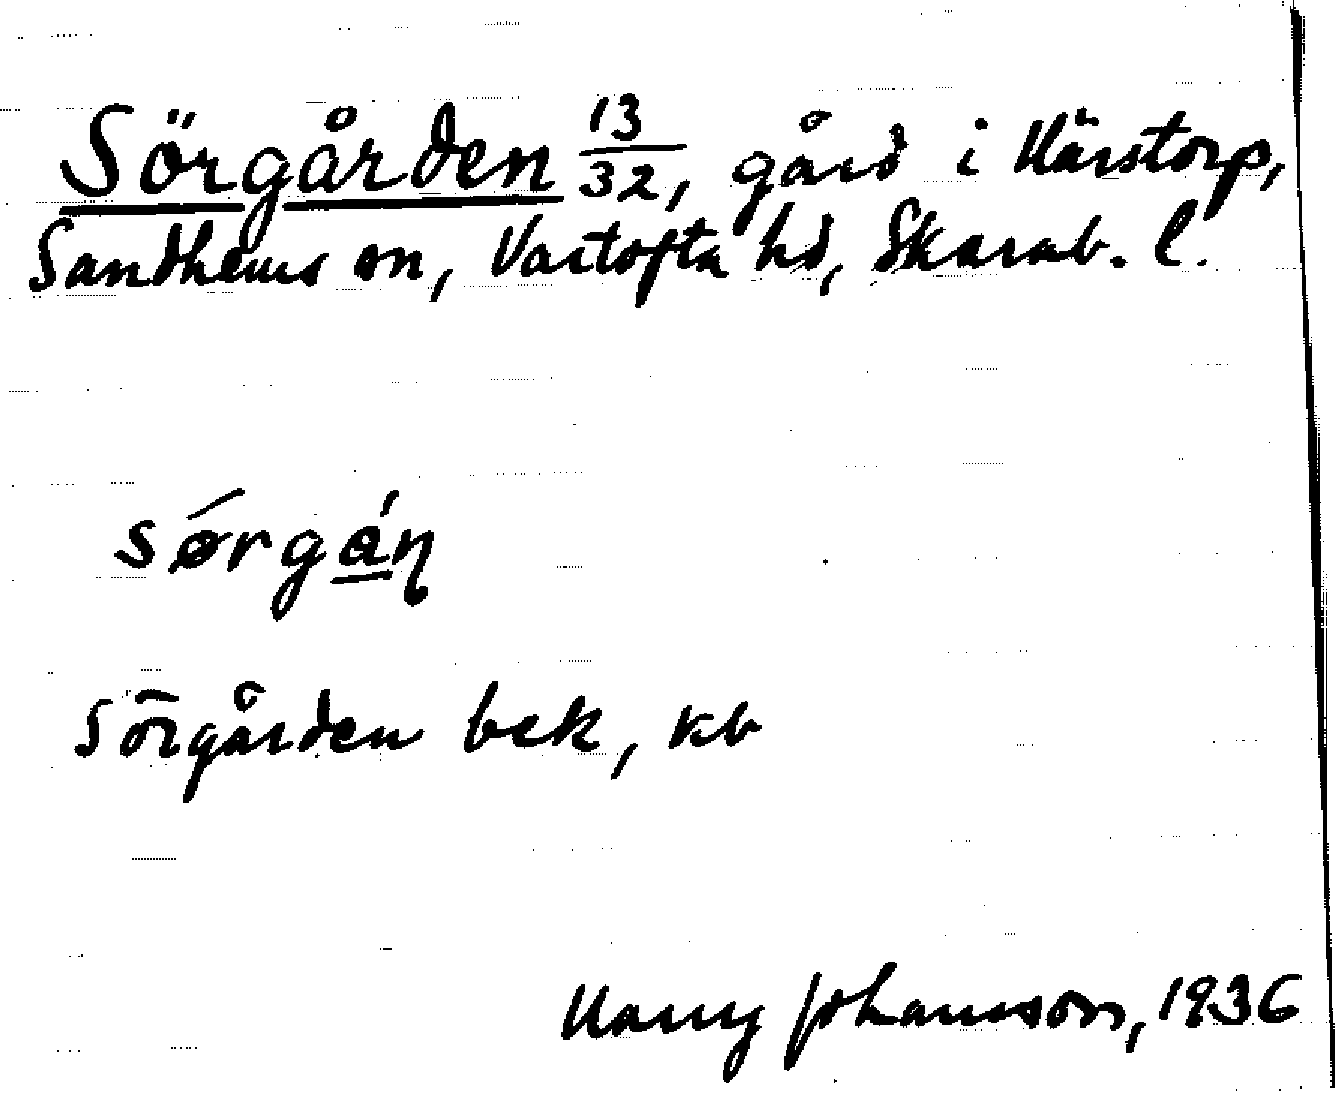 Sörgården 13/32, gård i Härstorp,
Sandhems sn, Vartofta hd, Skarab. l.
sǿrgá̲ɳ
Sörgården bek, kb
Harry Johansson, 1936